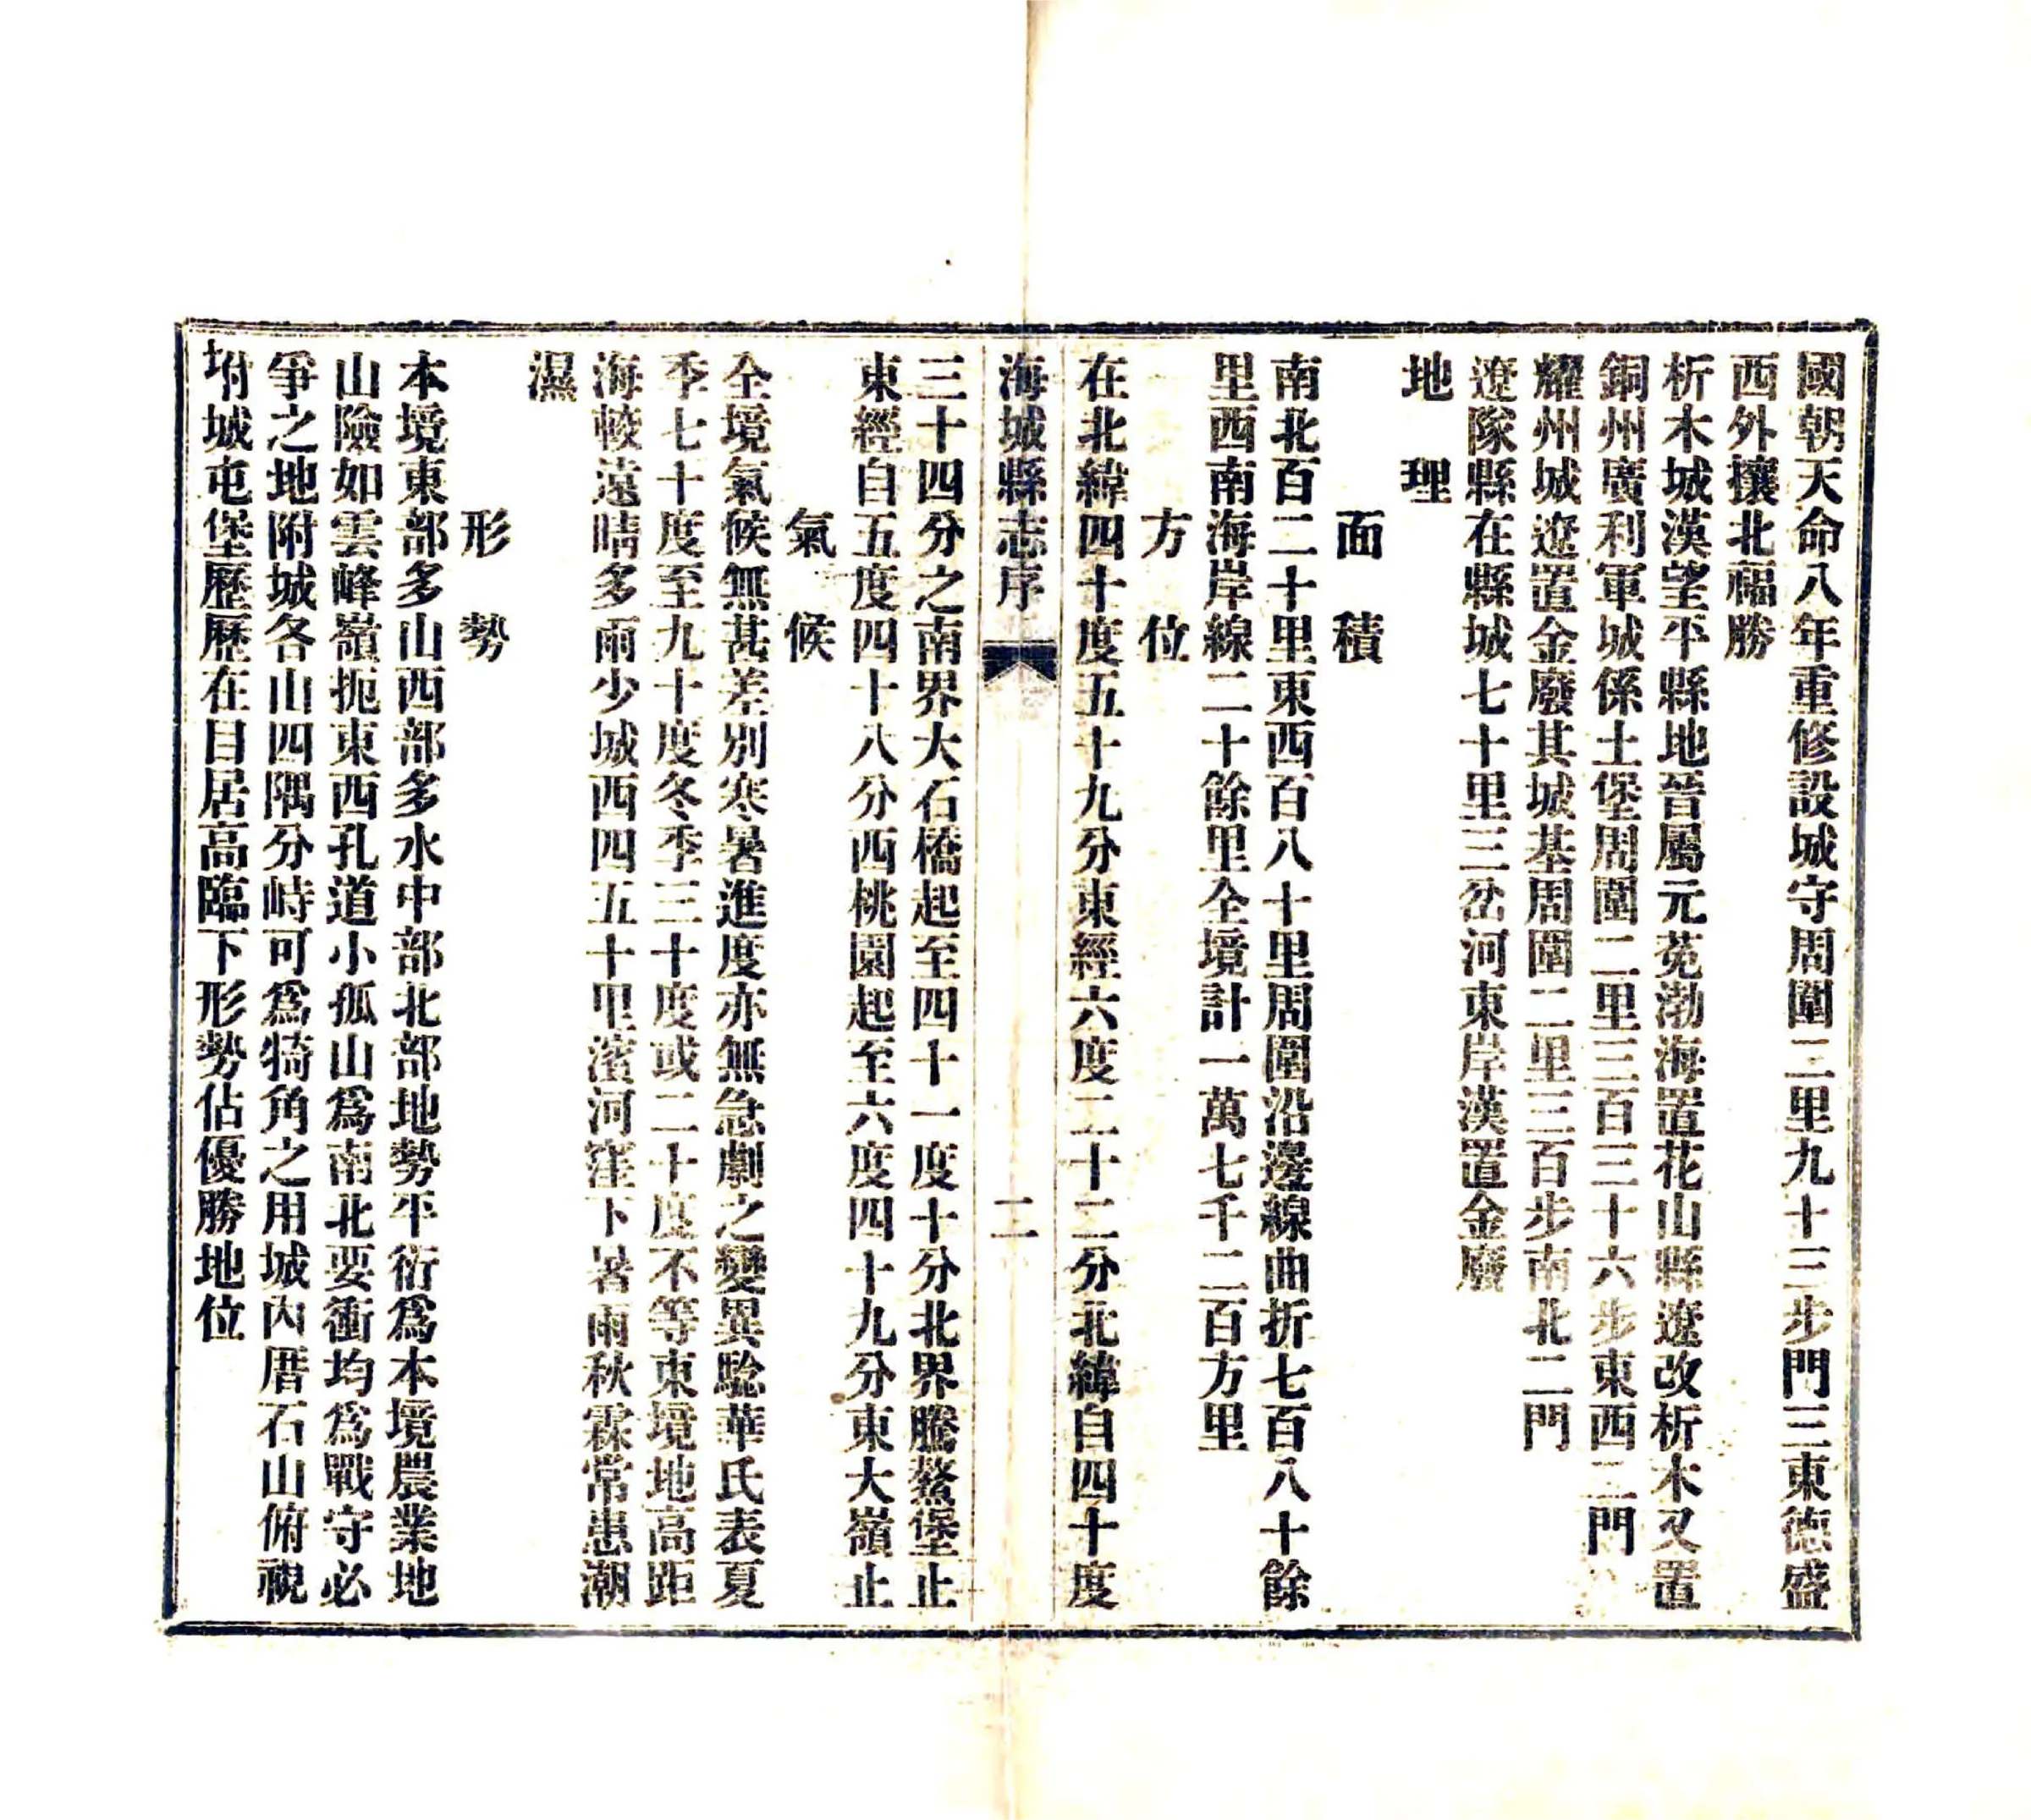 國朝天命八年重修設城守周圍二里九十三步門三東德盛
西外攘北福勝
析木城漢望平縣地晉屬元菟渤海置花山縣遼改析木又置
銅州廣利軍城係土堡周圍二里三百三十六步東西二門
耀州城遼置金廢其城基周圍二里三百步南北二門
遼隊縣在縣城七十里三岔河東岸漢置金廢
地理
面積
南北百二十里東西百八十里周圍沿邊線曲折七百八十餘
里西南海岸線二十餘里全境計一萬七千二百方里
方位
在北緯四十度五十九分東經六度二十二分北緯自四十度
海城縣志序 二
三十四分之南界大石橋起至四十一度十分北界騰鰲堡止
東經自五度四十八分西桃園起至六度四十九分東大嶺止
氣候
全境氣候無甚差別寒暑進度亦無急劇之變異驗華氏表夏
季七十度至九十度冬季三十度或二十度不等東境地高距
海較遠晴多雨少城西四五十里濱河窪下暑雨秋霖常患潮
濕
形勢
本境東部多山西部多水中部北部地勢平衍爲本境農業地
山險如雲峰嶺扼東西孔道小孤山爲南北要衝均爲戰守必
爭之地附城各山四隅分峙可爲犄角之用城內厝石山俯視
坿城屯堡歷歷在目居高臨下形勢佔優勝地位